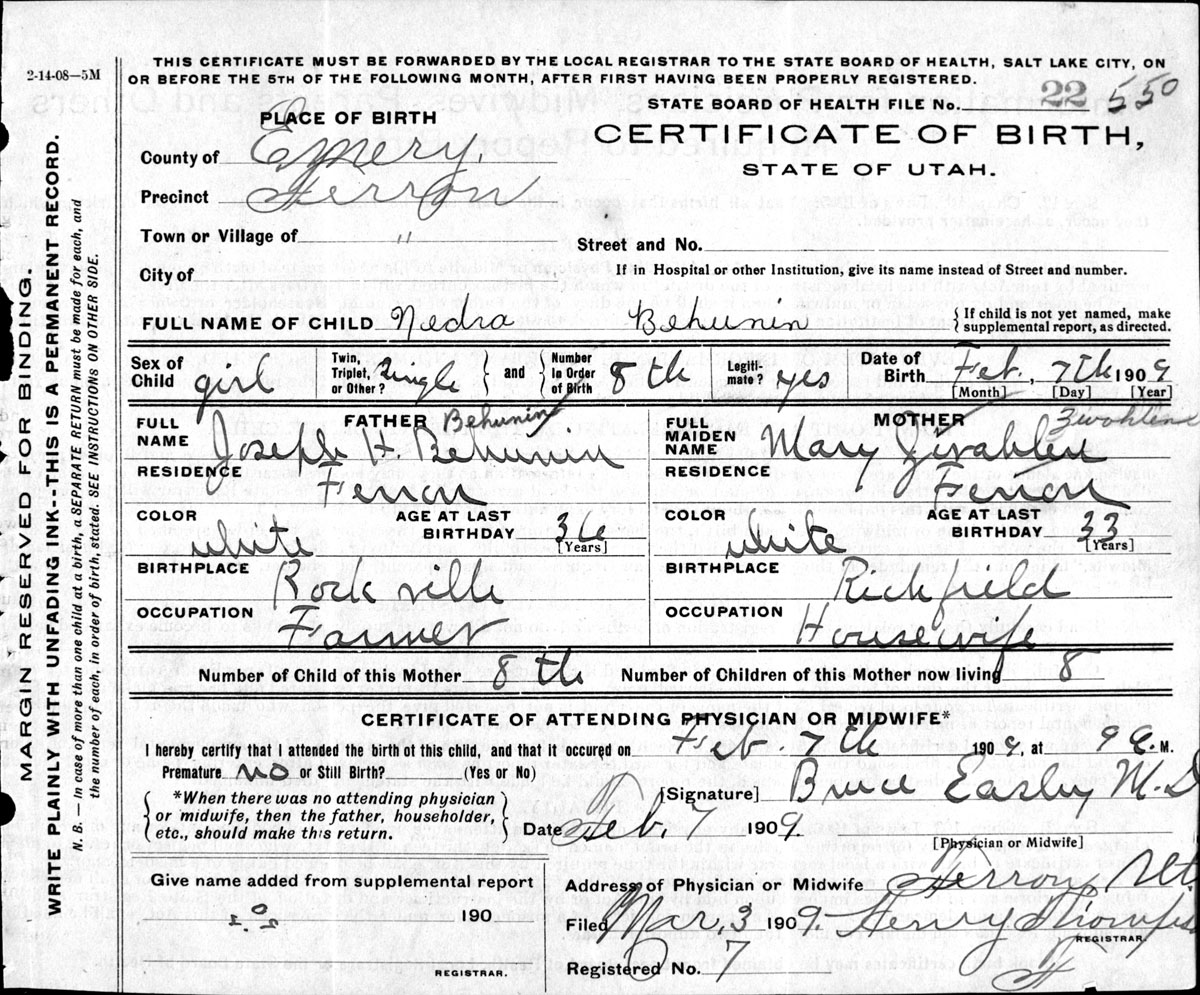 2-14-08—5M
THIS CERTIFICATE MUST BE FORWARDED BY THE LOCAL REGISTRAR TO THE STATE BOARD OF HEALTH, SALT LAKE CITY, ON
OR BEFORE THE 5TH OF THE FOLLOWING MONTH, AFTER FIRST HAVING BEEN PROPERLY REGISTERED.
STATE BOARD OF HEALTH FILE No. 22 550
PLACE OF BIRTH
CERTIFICATE OF BIRTH,
STATE OF UTAH.
County of Emery.
Precinct Ferron
Town or Village of "
Street and No.
City of
If in Hospital or other Institution, give its name instead of Street and number.
FULL NAME OF CHILD Nedra Behunin
{ If child is not yet named, make
supplemental report, as directed.
Sex of Child girl
Twin, Triplet, or Other? Single } and { Number in Order of Birth 8th
Legiti-mate? yes
Date of Birth Feb., 7th 1909
[Month] [Day] [Year]
FATHER Behunin
FULL NAME Joseph H. Behunin
RESIDENCE Ferron
COLOR white
AGE AT LAST BIRTHDAY 36 [Years]
BIRTHPLACE Rockville
OCCUPATION Farmer
MOTHER Zwahlene
FULL MAIDEN NAME Mary Zwahlen
RESIDENCE Ferron
COLOR white
AGE AT LAST BIRTHDAY 33 [Years]
BIRTHPLACE Richfield
OCCUPATION Housewife
Number of Child of this Mother 8th Number of Children of this Mother now living 8
CERTIFICATE OF ATTENDING PHYSICIAN OR MIDWIFE*
I hereby certify that I attended the birth of this child, and that it occured on Feb. 7th 1909, at 9 a. M.
Premature no or Still Birth? (Yes or No)
{ *When there was no attending physician
or midwife, then the father, householder,
etc., should make this return. }
[Signature] Bruce Easley M.D
Date Feb. 7 1909.
[Physician or Midwife]
Give name added from supplemental report
190
REGISTRAR.
Address of Physician or Midwife Ferron, Utah
Filed Mar, 3 1909. Henry Thompson
REGISTRAR.
Registered No. 7
MARGIN RESERVED FOR BINDING.
WRITE PLAINLY WITH UNFADING INK--THIS IS A PERMANENT RECORD.
N. B. — In case of more than one child at a birth, a SEPARATE RETURN must be made for each, and
the number of each, in order of birth, stated. SEE INSTRUCTIONS ON OTHER SIDE.